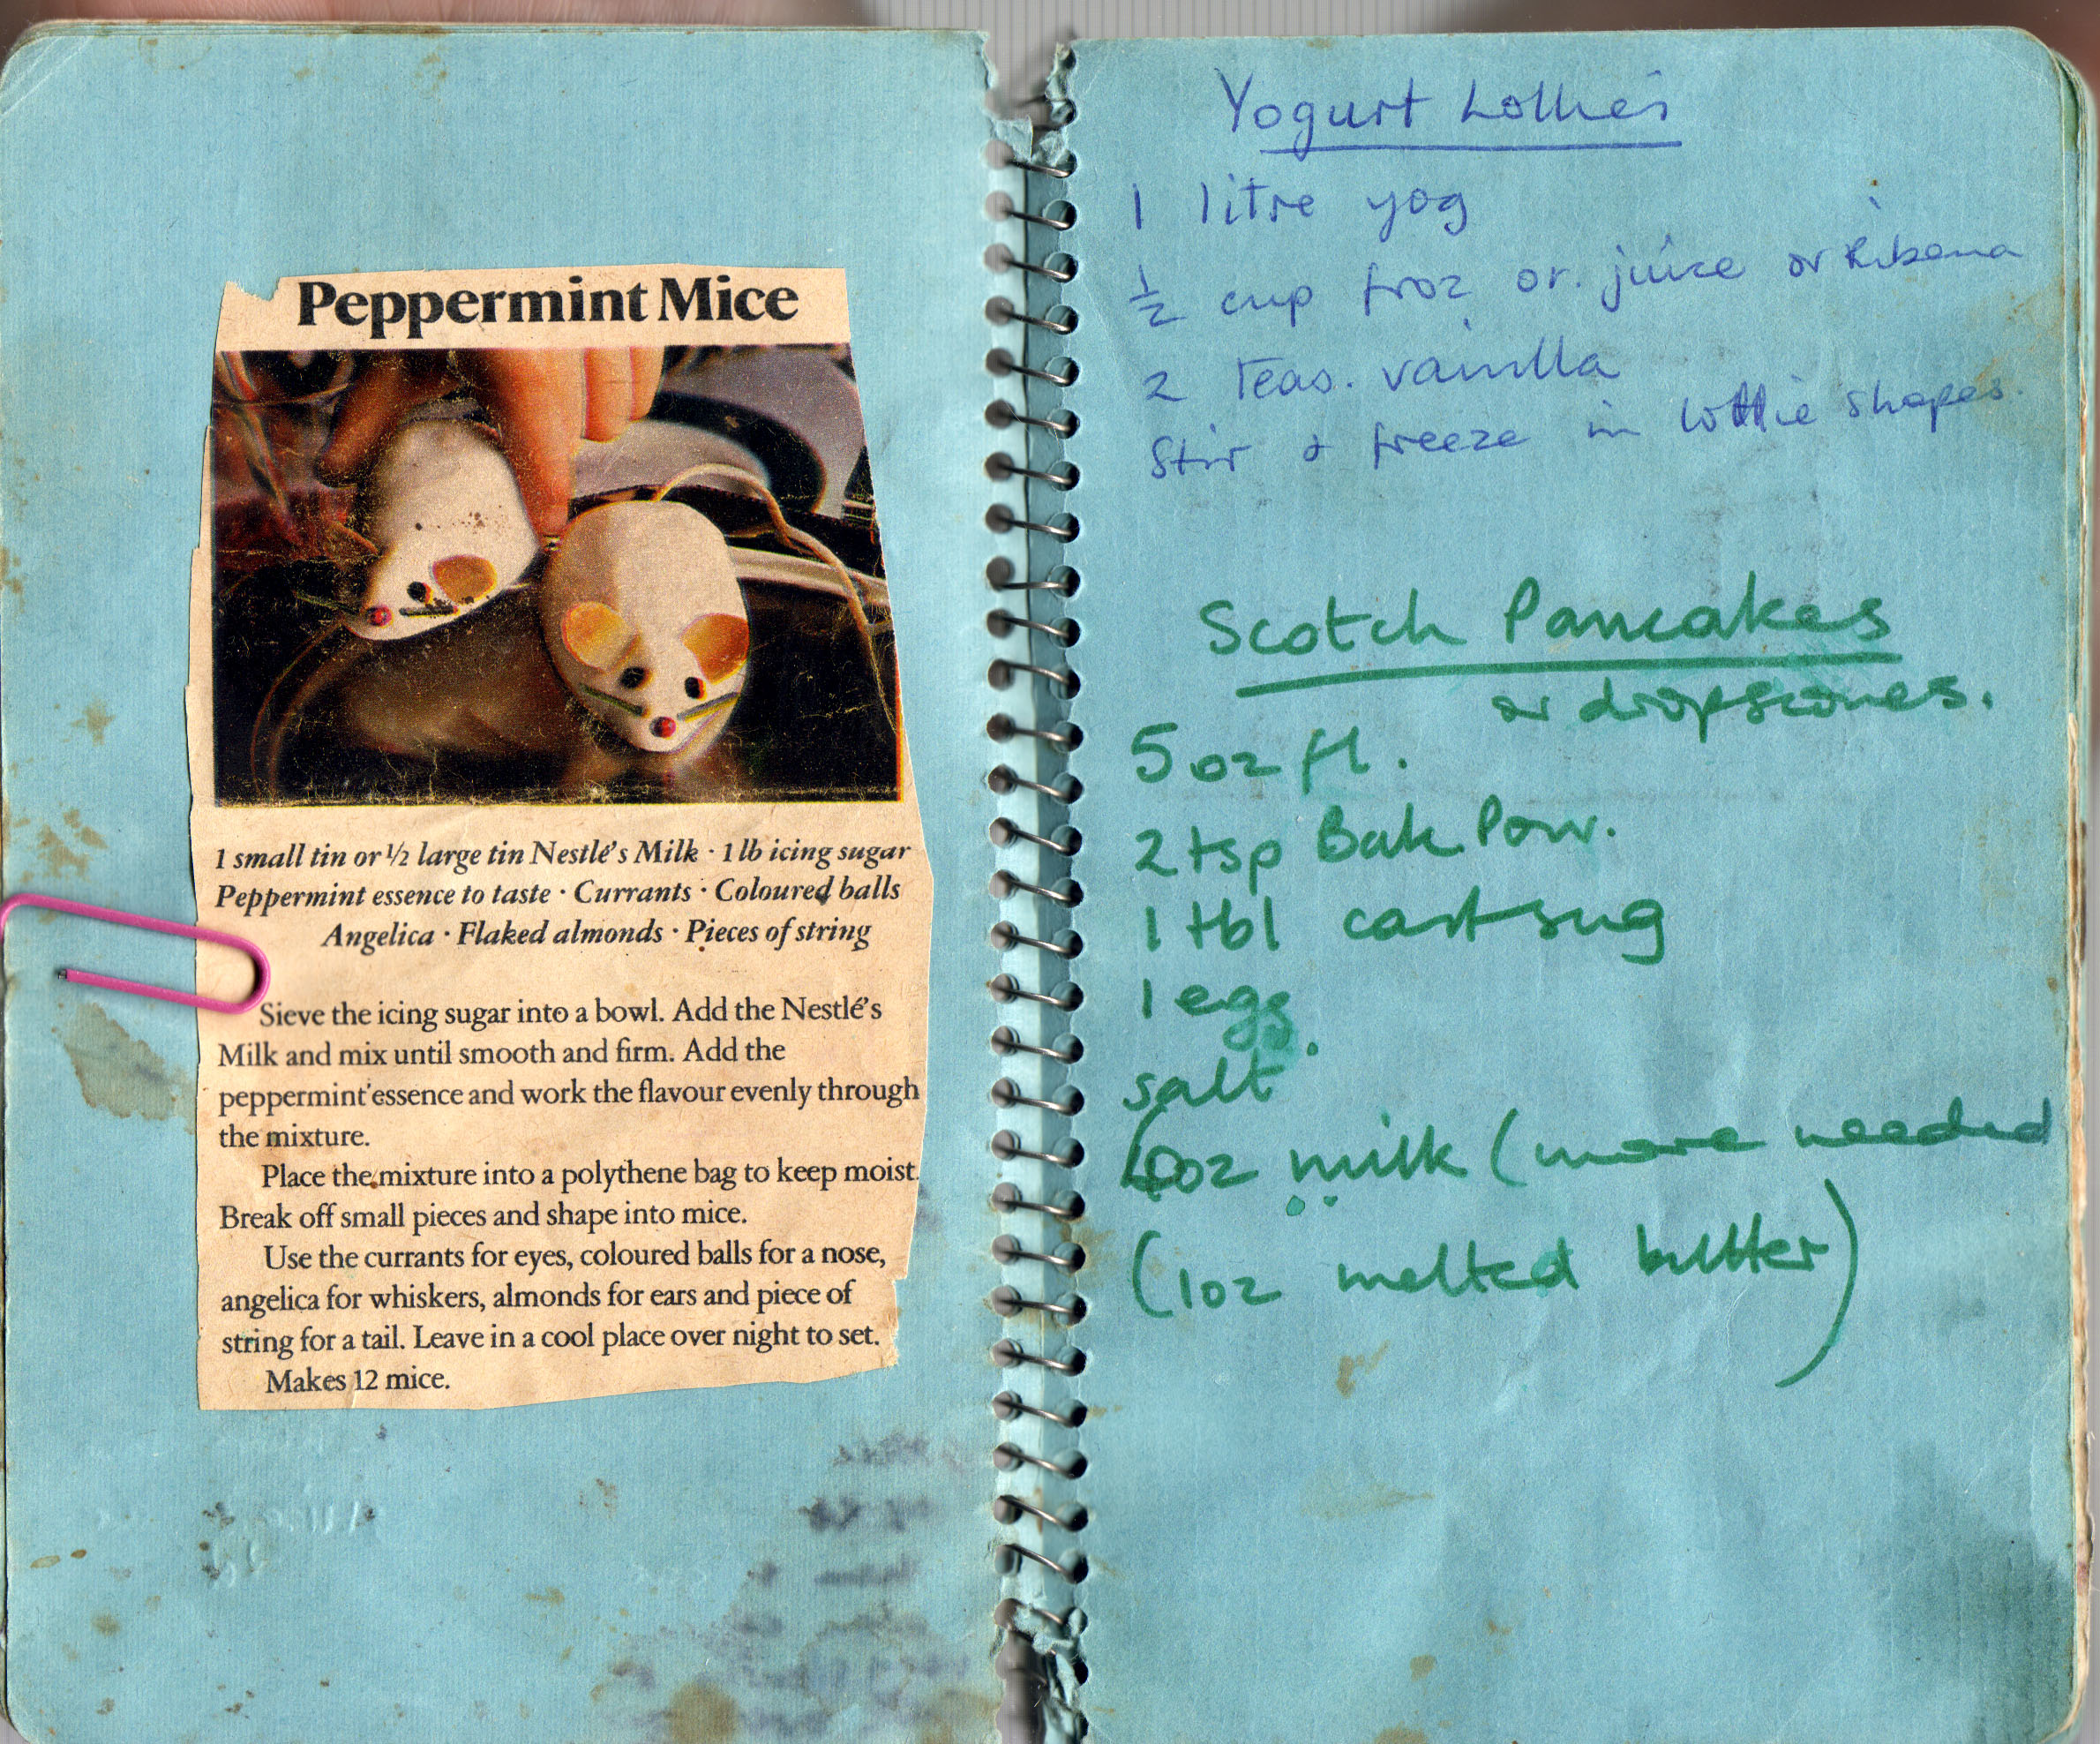 Peppermint Mice
1 small tin or ½ large tin Nestlé's Milk · 1 lb icing sugar
Peppermint essence to taste · Currants · Coloured balls
Angelica · Flaked almonds · Pieces of string
Sieve the icing sugar into a bowl. Add the Nestlé's
Milk and mix until smooth and firm. Add the
peppermint essence and work the flavour evenly through
the mixture.
Place the mixture into a polythene bag to keep moist.
Break off small pieces and shape into mice.
Use the currants for eyes, coloured balls for a nose,
angelica for whiskers, almonds for ears and piece of
string for a tail. Leave in a cool place over night to set.
Makes 12 mice.
Yogurt Lollies
1 litre yog
½ cup froz or. juice or Ribena
2 teas. vanilla
Stir & freeze in lollie shapes.
Scotch Pancakes
or dropscones.
5 oz fl.
2 tsp Bak. Pow.
1 tbl cast sug
1 egg.
salt
oz milk (more needed
(1oz melted butter)